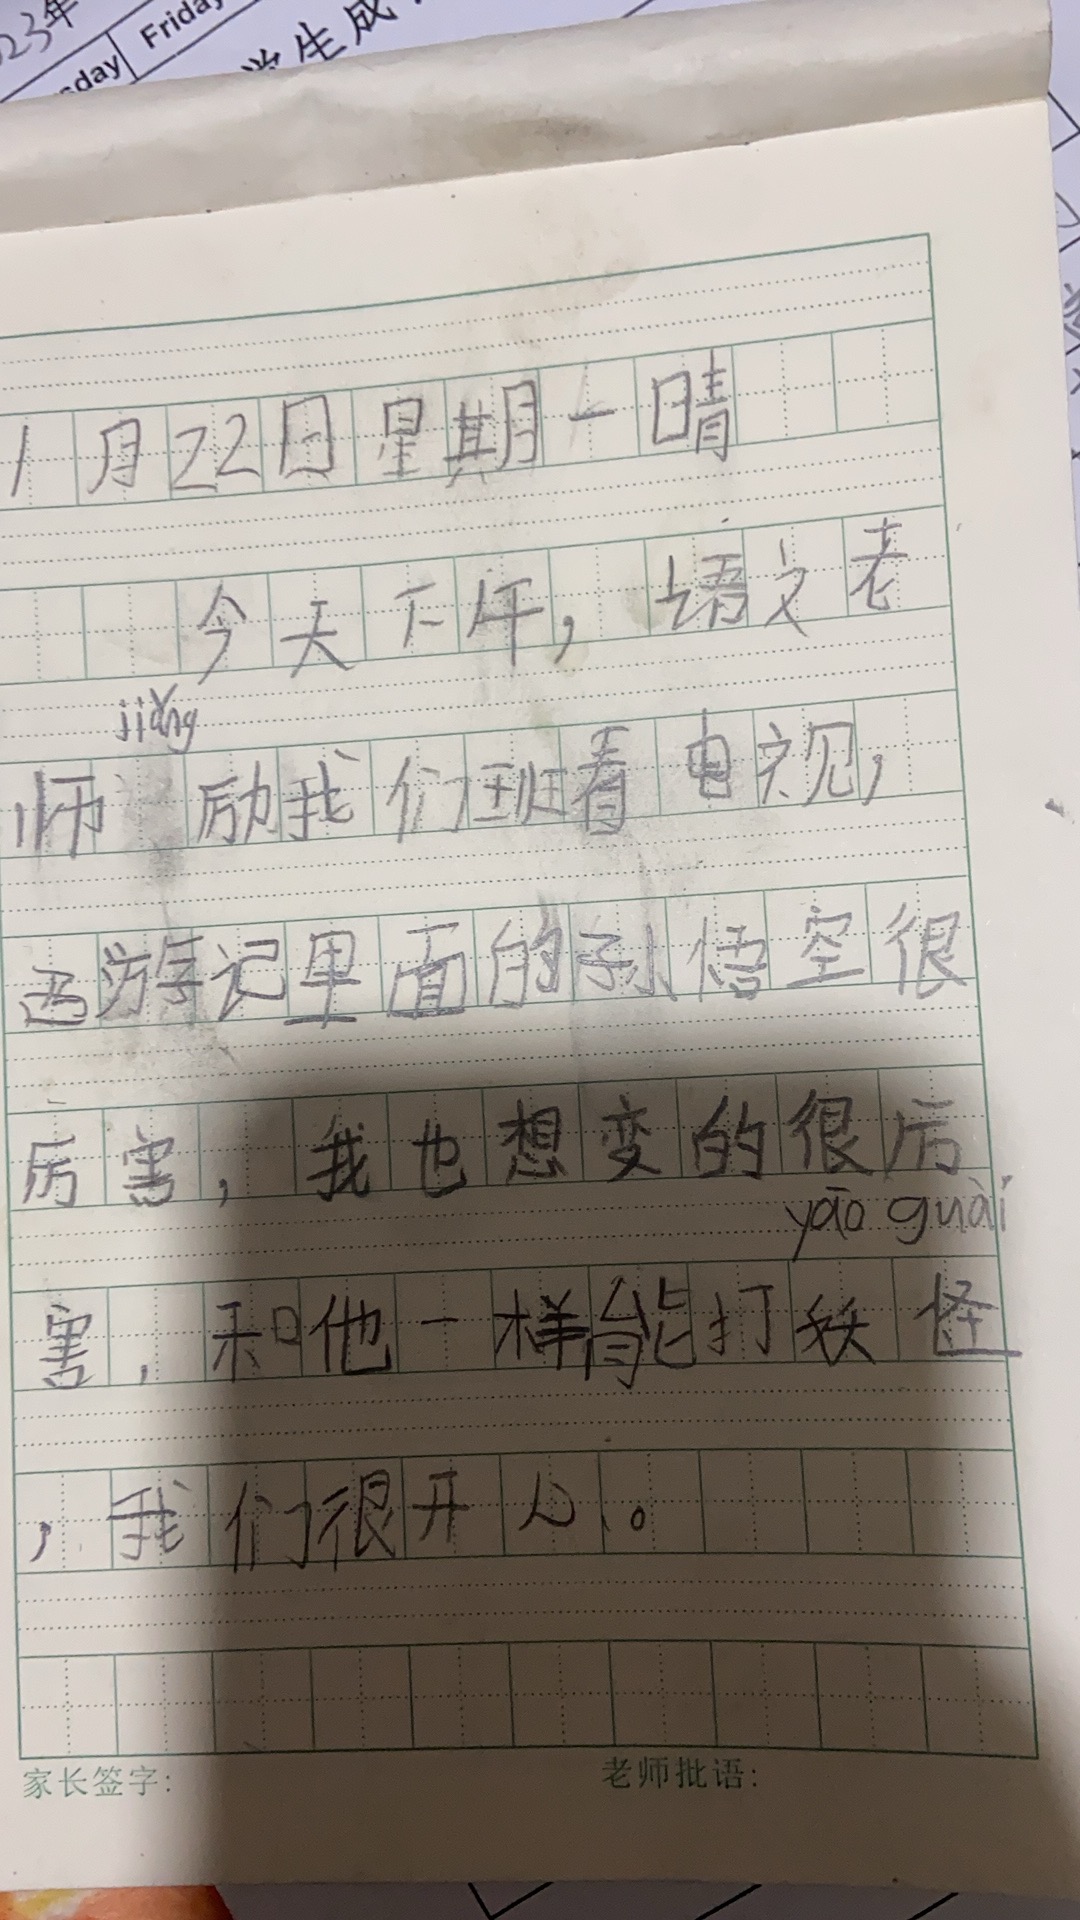 23年
sday Friday
学生成
1月22日星期一晴
今天下午，语文老
jiǎng
师 励我们班看电视，
西游记里面的孙悟空很
厉害，我也想变的很厉
yāo guài
害，和他一样能打妖怪
，我们很开心。
家长签字: 老师批语: